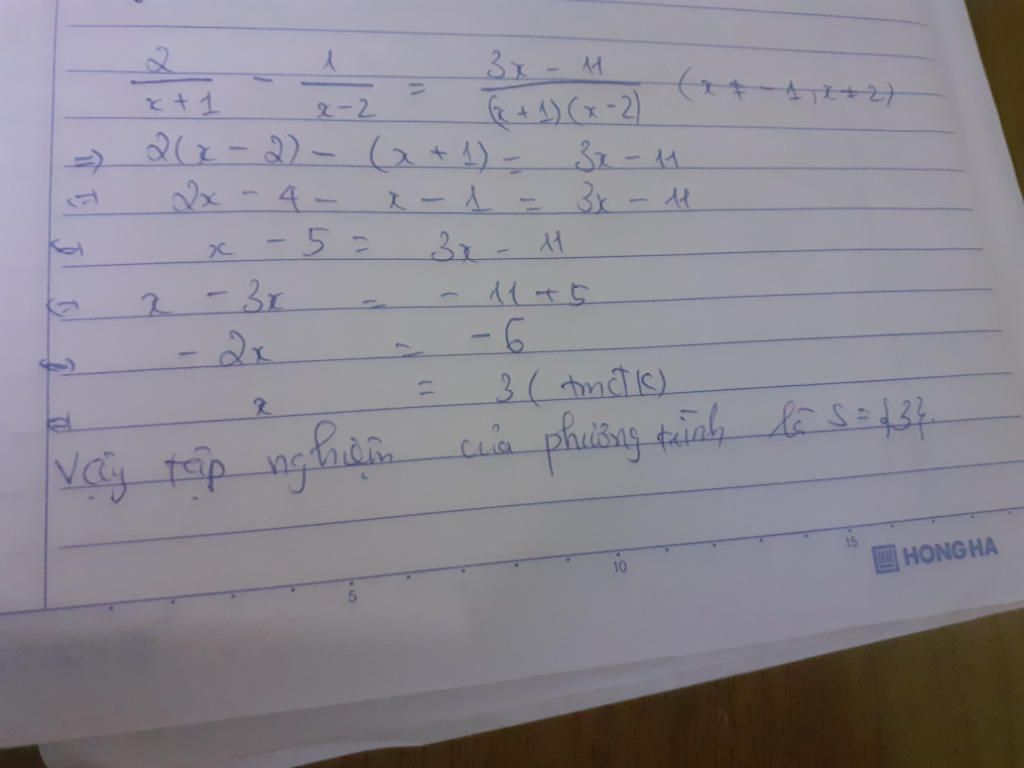 2/(x+1) - 1/(x-2) = (3x - 11)/((x+1)(x-2)) (x ≠ -1, x ≠ 2)
=> 2(x - 2) - (x + 1) = 3x - 11
<=> 2x - 4 - x - 1 = 3x - 11
<=> x - 5 = 3x - 11
<=> x - 3x = - 11 + 5
<=> - 2x = - 6
<=> x = 3 (tmĐK)
Vậy tập nghiệm của phương trình là S = {3}.
5 10 15
HONG HA